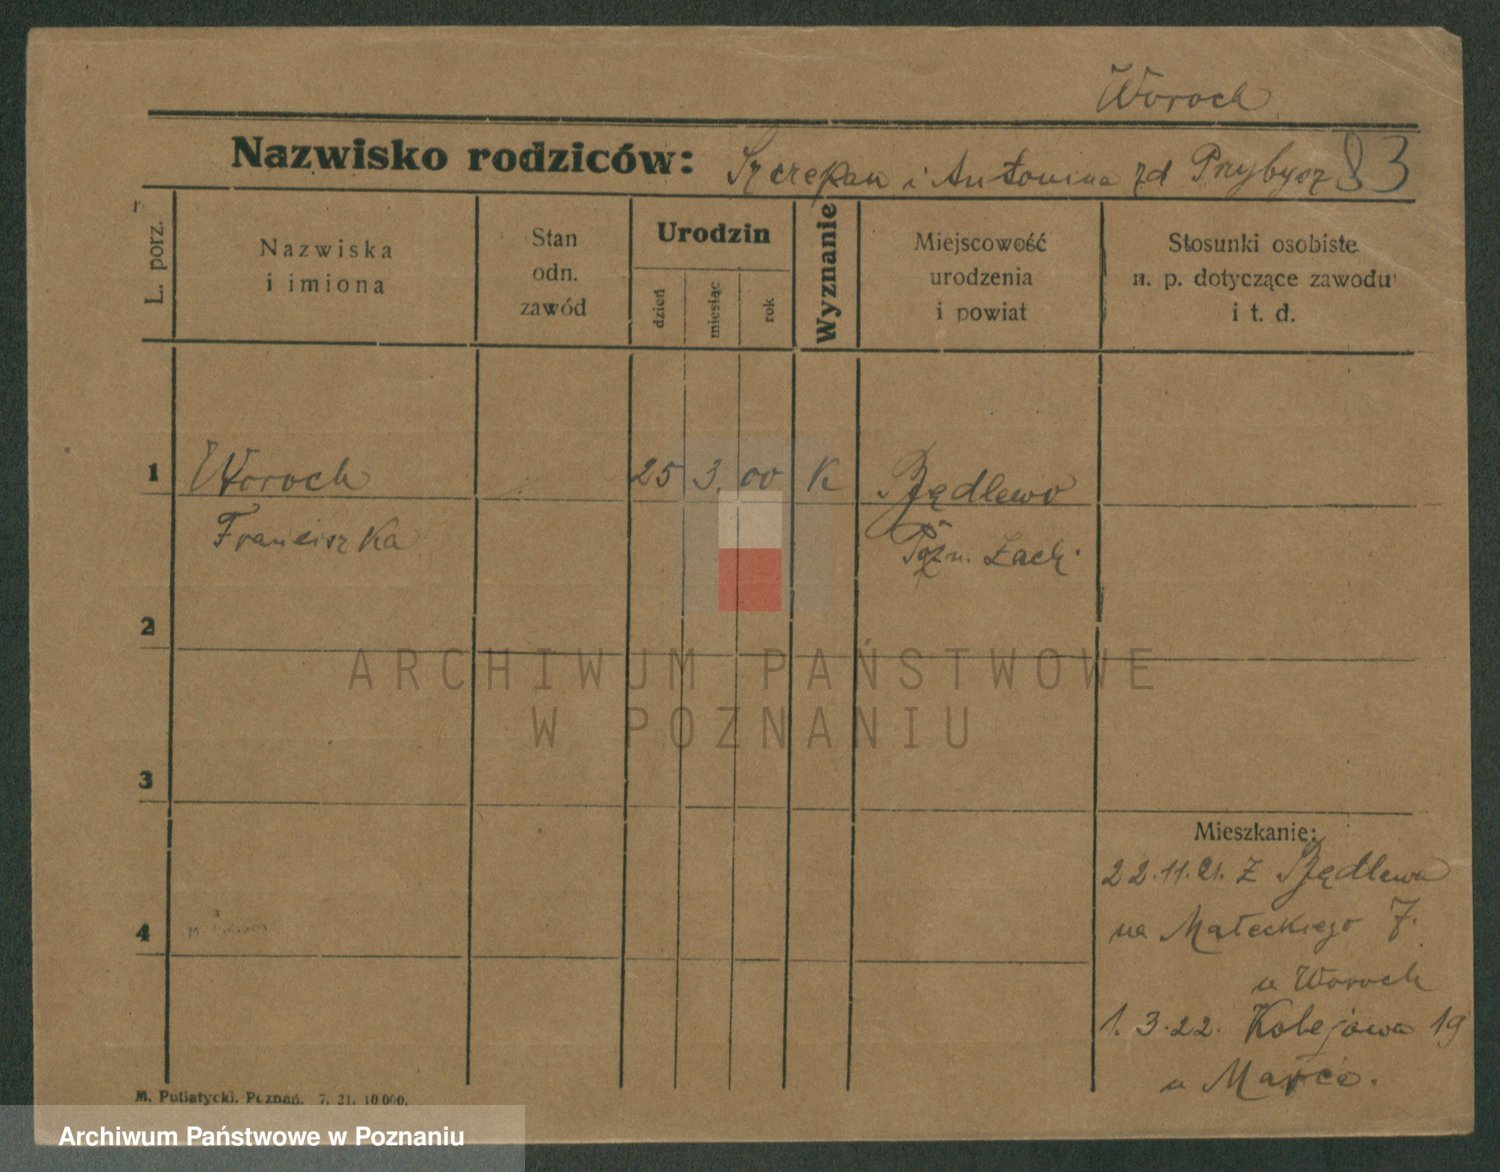 Woroch
Nazwisko rodziców: Szczepan i Antonina zd Przybysz 83
L. porz.
Nazwiska
i imiona
Stan
odn.
zawód
Urodzin
dzień
miesiąc
rok
Wyznanie
Miejscowość
urodzenia
i powiat
Stosunki osobiste
n. p. dotyczące zawodu
i t. d.
1 Woroch 25 3 00 K Będlewo
Franciszka Pozn. Zach.
2
3
Mieszkanie:
22.11.21. z Będlewa
4
na Małeckiego 7.
u Woroch
1.3.22. Kolejowa 19
u
M. Putiatycki. Poznań. 7. 21. 10 000.
ARCHIWUM PAŃSTWOWE
W POZNANIU
Archiwum Państwowe w Poznaniu